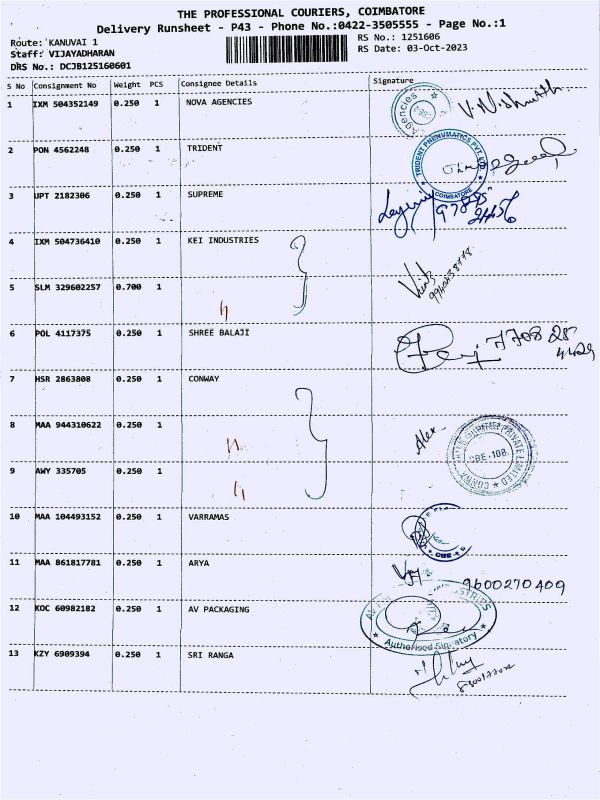 THE PROFESSIONAL COURIERS, COIMBATORE
Delivery Runsheet - P43 - Phone No.:0422-3505555 - Page No.:1
Route: KANUVAI 1
RS No.: 1251606
Staff: VIJAYADHARAN
RS Date: 03-Oct-2023
DRS No.: DCJB125160601
S No Consignment No Weight PCS Consignee Details Signature
1 IXM 504352149 0.250 1 NOVA AGENCIES
Agencies
2 PON 4562248 0.250 1 TRIDENT
TRIDENT PNEUMATICS PVT. LTD
COIMBATORE
3 UPT 2182306 0.250 1 SUPREME
4 IXM 504736410 0.250 1 KEI INDUSTRIES
5 SLM 329602257 0.700 1 "
6 POL 4117375 0.250 1 SHREE BALAJI
7 HSR 2863808 0.250 1 CONWAY
8 MAA 944310622 0.250 1 "
Alex
PRIVATE LIMITED
CBE-108
9 AWY 335705 0.250 1 "
10 MAA 104493152 0.250 1 VARRAMAS
CBE
11 MAA 861817781 0.250 1 ARYA
9600270409
12 KOC 60982182 0.250 1 AV PACKAGING
AV
Authorised Signatory
13 KZY 6909394 0.250 1 SRI RANGA